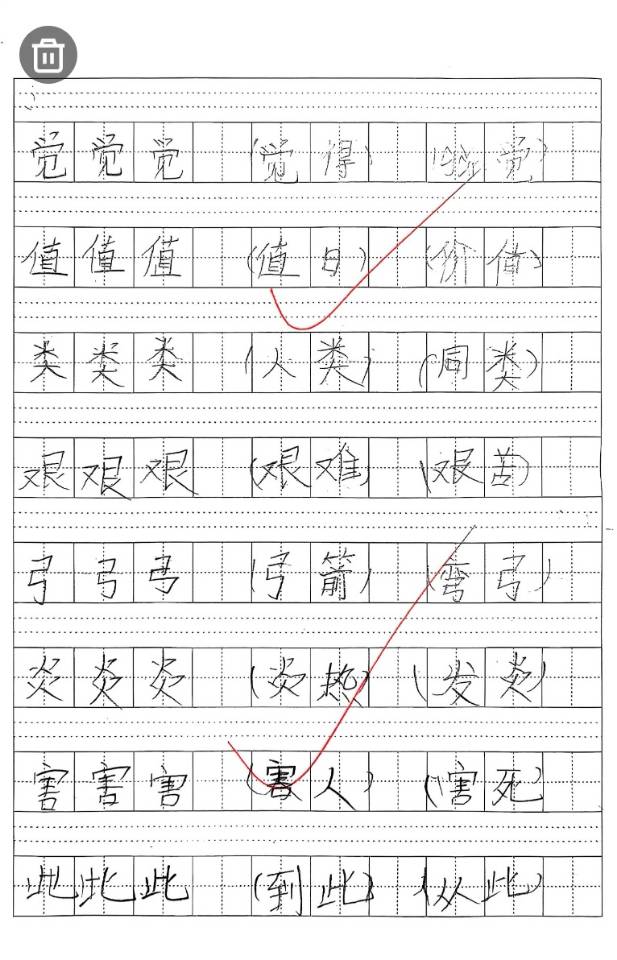 觉觉觉(觉得)(睡觉)
值值值(值日)(价值)
类类类(人类)(同类)
艰艰艰(艰难)(艰苦)
弓弓弓(弓箭)(弯弓)
炎炎炎(炎热)(发炎)
害害害(害人)(害死)
此此此(到此)(从此)